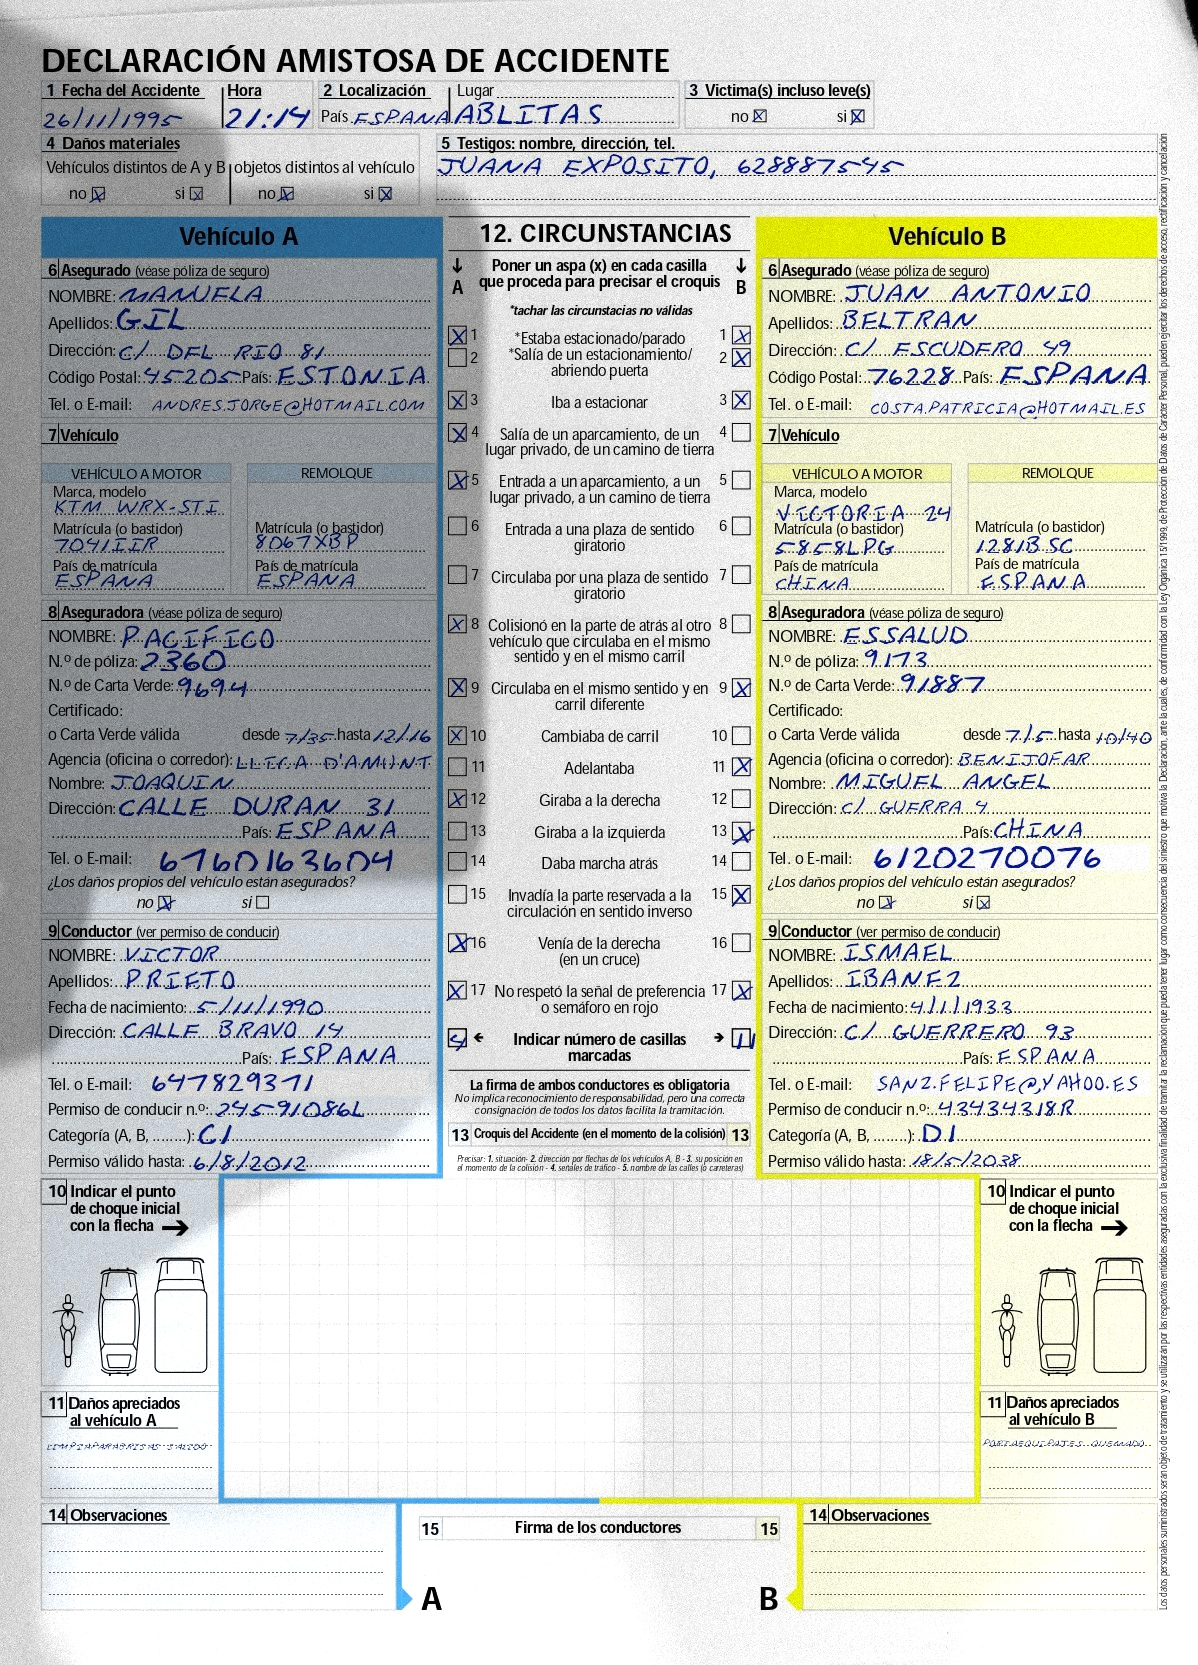 DECLARACIÓN AMISTOSA DE ACCIDENTE
1 Fecha del Accidente Hora 2 Localización Lugar 3 Victima(s) incluso leve(s)
26/11/1995 21:14 País ESPANA ABLITAS no X si X
4 Daños materiales 5 Testigos: nombre, dirección, tel.
Vehículos distintos de A y B objetos distintos al vehículo JUANA EXPOSITO, 628887545
no X si X no X si X
Vehículo A
6 Asegurado (véase póliza de seguro)
NOMBRE: MANUELA
Apellidos: GIL
Dirección: C/ DEL RIO 81
Código Postal: 45205 País: ESTONIA
Tel. o E-mail: ANDRES.JORGE@HOTMAIL.COM
7 Vehículo
VEHÍCULO A MOTOR REMOLQUE
Marca, modelo
KTM WRX-STI
Matrícula (o bastidor) Matrícula (o bastidor)
7041IIR 8067XBP
País de matrícula País de matrícula
ESPANA ESPANA
8 Aseguradora (véase póliza de seguro)
NOMBRE: PACIFICO
N.º de póliza: 2360
N.º de Carta Verde: 9694
Certificado:
o Carta Verde válida desde 7/35 hasta 12/16
Agencia (oficina o corredor): LLICA D'AMUNT
Nombre: JOAQUIN
Dirección: CALLE DURAN 31
País: ESPANA
Tel. o E-mail: 6760163604
¿Los daños propios del vehículo están asegurados?
no X si
9 Conductor (ver permiso de conducir)
NOMBRE: VICTOR
Apellidos: PRIETO
Fecha de nacimiento: 5/11/1990
Dirección: CALLE BRAVO 14
País: ESPANA
Tel. o E-mail: 647829371
Permiso de conducir n.º: 24591086L
Categoría (A, B, ........): C1
Permiso válido hasta: 6/8/2012
10 Indicar el punto
de choque inicial
con la flecha
11 Daños apreciados
al vehículo A
LIMPIAPARABRISAS SALIDO
14 Observaciones
12. CIRCUNSTANCIAS
Poner un aspa (x) en cada casilla
A que proceda para precisar el croquis B
*tachar las circunstacias no válidas
X 1 *Estaba estacionado/parado 1 X
2 *Salía de un estacionamiento/ 2 X
abriendo puerta
X 3 Iba a estacionar 3 X
X 4 Salía de un aparcamiento, de un 4
lugar privado, de un camino de tierra
X 5 Entrada a un aparcamiento, a un 5
lugar privado, a un camino de tierra
6 Entrada a una plaza de sentido 6
giratorio
7 Circulaba por una plaza de sentido 7
giratorio
X 8 Colisionó en la parte de atrás al otro 8
vehículo que circulaba en el mismo
sentido y en el mismo carril
X 9 Circulaba en el mismo sentido y en 9 X
carril diferente
X 10 Cambiaba de carril 10
11 Adelantaba 11 X
X 12 Giraba a la derecha 12
13 Giraba a la izquierda 13 X
14 Daba marcha atrás 14
15 Invadía la parte reservada a la 15 X
circulación en sentido inverso
X 16 Venía de la derecha 16
(en un cruce)
X 17 No respetó la señal de preferencia 17 X
o semáforo en rojo
Indicar número de casillas 11
marcadas
La firma de ambos conductores es obligatoria
No implica reconocimiento de responsabilidad, pero una correcta
consignación de todos los datos facilita la tramitación.
13 Croquis del Accidente (en el momento de la colisión) 13
Precisar: 1. situación- 2. dirección por flechas de los vehículos A, B - 3. su posición en
el momento de la colisión - 4. señales de tráfico - 5. nombre de las calles (o carreteras)
15 Firma de los conductores 15
A B
Vehículo B
6 Asegurado (véase póliza de seguro)
NOMBRE: JUAN ANTONIO
Apellidos: BELTRAN
Dirección: C/ ESCUDERO 49
Código Postal: 76228 País: ESPANA
Tel. o E-mail: COSTA.PATRICIA@HOTMAIL.ES
7 Vehículo
VEHÍCULO A MOTOR REMOLQUE
Marca, modelo
VICTORIA 24
Matrícula (o bastidor) Matrícula (o bastidor)
5858LPG 1281BSC
País de matrícula País de matrícula
CHINA ESPANA
8 Aseguradora (véase póliza de seguro)
NOMBRE: ESSALUD
N.º de póliza: 9173
N.º de Carta Verde: 91887
Certificado:
o Carta Verde válida desde 7/5 hasta 10/40
Agencia (oficina o corredor): BENIJOFAR
Nombre: MIGUEL ANGEL
Dirección: C/ GUERRA 4
País: CHINA
Tel. o E-mail: 6120270076
¿Los daños propios del vehículo están asegurados?
no X si X
9 Conductor (ver permiso de conducir)
NOMBRE: ISMAEL
Apellidos: IBANEZ
Fecha de nacimiento: 4/1/1933
Dirección: C/ GUERRERO 93
País: ESPANA
Tel. o E-mail: SANZ.FELIPE@YAHOO.ES
Permiso de conducir n.º: 43434318R
Categoría (A, B, ........): D1
Permiso válido hasta: 18/5/2038
10 Indicar el punto
de choque inicial
con la flecha
11 Daños apreciados
al vehículo B
PORTAEQUIPAJES QUEMADO
14 Observaciones
Los datos personales suministrados seran objeto de tratamiento y se utilizaran por las respectivas entidades aseguradas con la exclusiva finalidad de tramitar la reclamación que pueda tener lugar como consecuencia del siniestro que motiva la Declaración, ante la cuales, de conformidad con la Ley Organica 15/1999, de Protección de Datos de Carácter Personal, pueden ejercitar los derechos de acceso, rectificación y cancelación